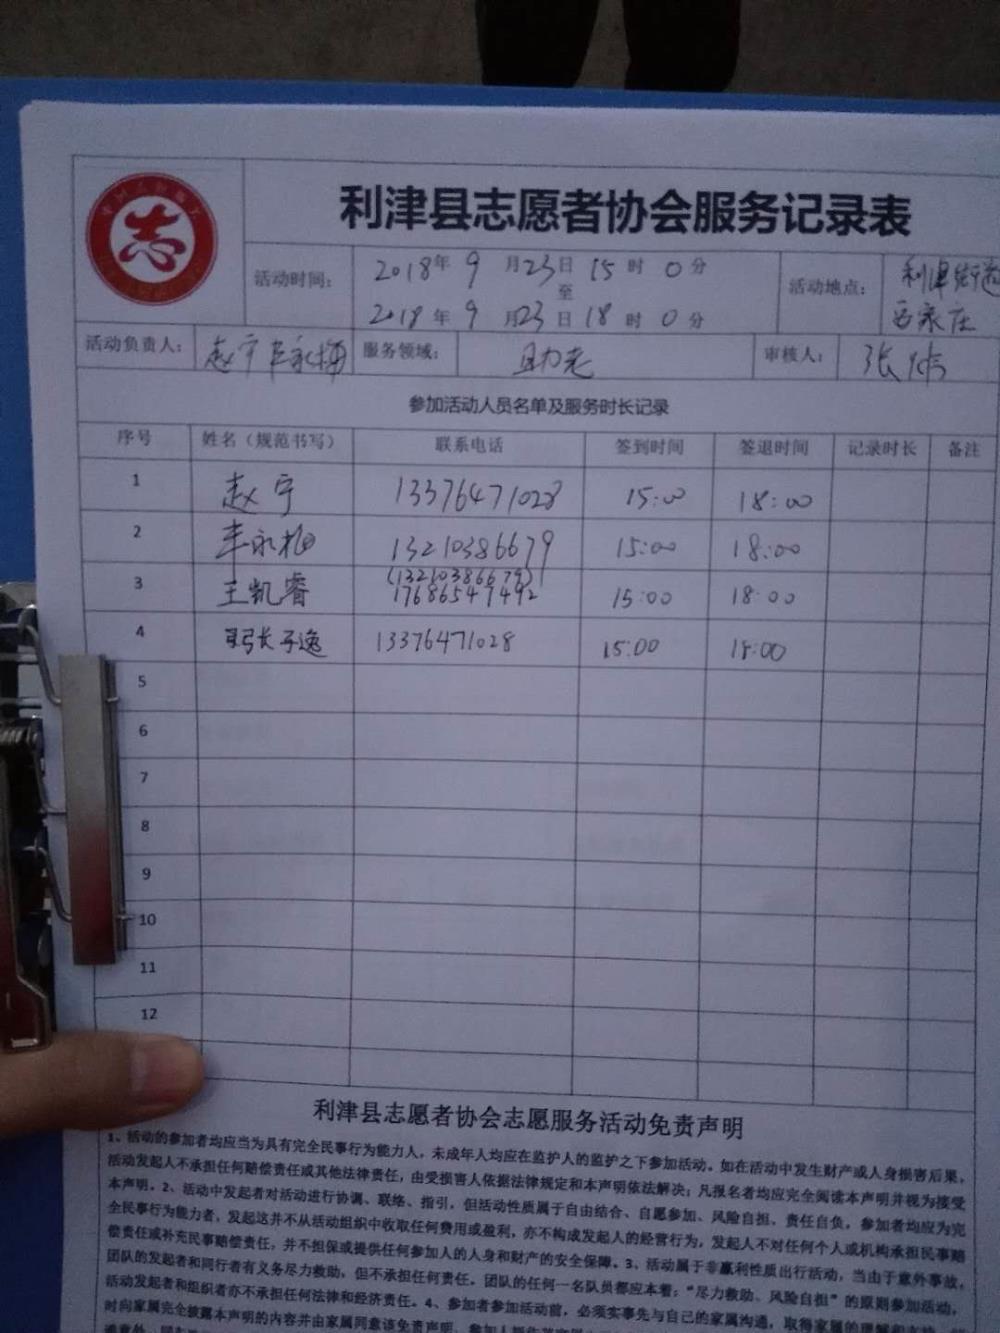 利津县志愿者协会服务记录表
活动时间： 2018年 9 月23日 15 时 0 分
至
2018 年 9 月23 日 18 时 0 分
活动地点： 利津街道
活动负责人： 赵宁 服务领域： 助老 审核人： 张伟
参加活动人员名单及服务时长记录
序号 姓名（规范书写） 联系电话 签到时间 签退时间 记录时长 备注
1 赵宁 13376471028 15:00 18:00
2 13210386679 15:00 18:00
3 王凯睿 (13210386679) 17686547492 15:00 18:00
4 张子逸 13376471028 15:00 18:00
5
6
7
8
9
10
11
12
利津县志愿者协会志愿服务活动免责声明
1、活动的参加者均应当为具有完全民事行为能力人，未成年人均应在监护人的监护之下参加活动。如在活动中发生财产或人身损害后果，
活动发起人不承担任何赔偿责任或其他法律责任，由受损害人依据法律规定和本声明依法解决；凡报名者均应完全阅读本声明并视为接受
本声明。2、活动中发起者对活动进行协调、联络、指引，但活动性质属于自由结合、自愿参加、风险自担、责任自负，参加者均应为完
全民事行为能力者，发起这并不从活动组织中收取任何费用或盈利，亦不构成发起人的经营行为，发起人不对任何个人或机构承担民事赔
偿责任或补充民事赔偿责任，并不担保或提供任何参加人的人身和财产的安全保障。3、活动属于非赢利性质出行活动，当由于意外事故，
团队的发起者和同行者有义务尽力救助，但不承担任何责任。团队的任何一名队员都应本着：“尽力救助、风险自担”的原则参加活动，
活动发起者和组织者亦不承担任何法律和经济责任。4、参加者参加活动前，必须实事先与自己的家属沟通，取得家属的理解和支持，
时向家属完全披露本声明的内容并由家属同意该免责声明。参加人